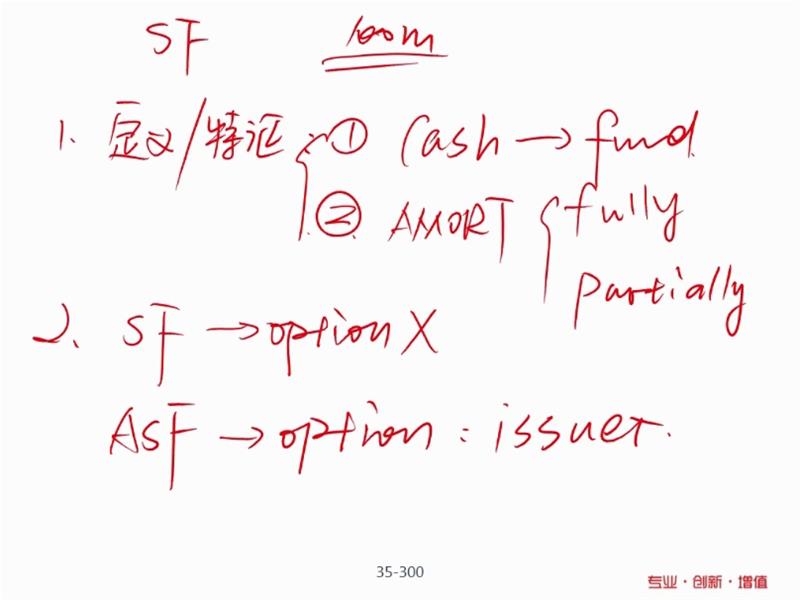 SF 100m
1. 定义/特征 ① Cash → fund
② AMORT fully
partially
2. SF → option X
ASF → option : issuer.
35-300
专业·创新·增值